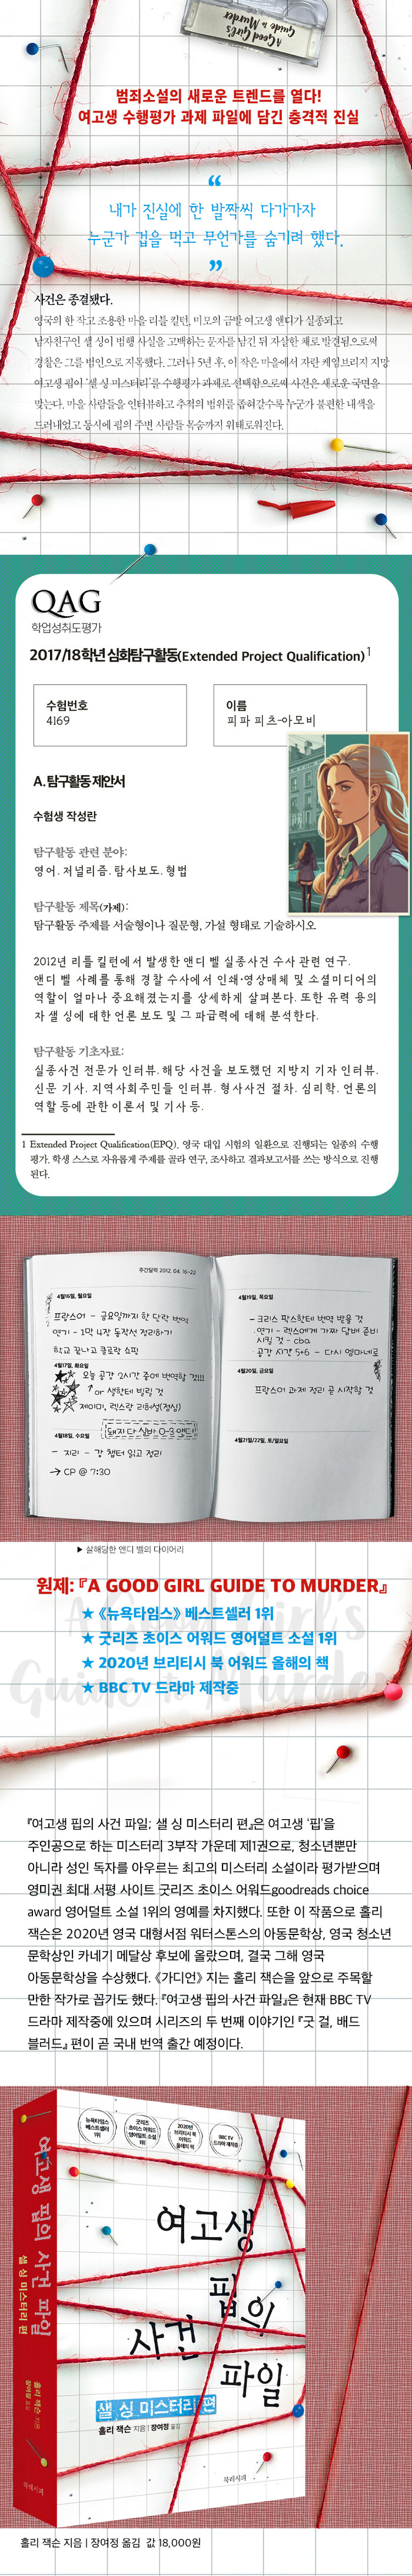 A Good Girl's
Guide to Murder
범죄소설의 새로운 트렌드를 열다!
여고생 수행평가 과제 파일에 담긴 충격적 진실
“
내가 진실에 한 발짝씩 다가가자
누군가 겁을 먹고 무언가를 숨기려 했다.
”
사건은 종결됐다.
영국의 한 작고 조용한 마을 리틀 킬턴. 미모의 금발 여고생 앤디가 실종되고
남자친구인 샐 싱이 범행 사실을 고백하는 문자를 남긴 뒤 자살한 채로 발견됨으로써
경찰은 그를 범인으로 지목했다. 그러나 5년 후, 이 작은 마을에서 자란 케임브리지 지망
여고생 핍이 ‘샐 싱 미스터리’를 수행평가 과제로 선택함으로써 사건은 새로운 국면을
맞는다. 마을 사람들을 인터뷰하고 추적의 범위를 좁혀갈수록 누군가 불편한 내색을
드러내었고 동시에 핍의 주변 사람들 목숨까지 위태로워진다.
QAG
학업성취도평가
2017/18학년 심화탐구활동(Extended Project Qualification)1
수험번호
4169
이름
피파 피츠-아모비
A. 탐구활동 제안서
수험생 작성란
탐구활동 관련 분야:
영어. 저널리즘. 탐사보도. 형법
탐구활동 제목(가제):
탐구활동 주제를 서술형이나 질문형, 가설 형태로 기술하시오
2012년 리틀 킬턴에서 발생한 앤디 벨 실종사건 수사 관련 연구.
앤디 벨 사례를 통해 경찰 수사에서 인쇄·영상매체 및 소셜미디어의
역할이 얼마나 중요해졌는지를 상세하게 살펴본다. 또한 유력 용의
자 샐 싱에 대한 언론 보도 및 그 파급력에 대해 분석한다.
탐구활동 기초자료:
실종사건 전문가 인터뷰. 해당 사건을 보도했던 지방지 기자 인터뷰.
신문 기사. 지역사회주민들 인터뷰. 형사사건 절차. 심리학. 언론의
역할 등에 관한 이론서 및 기사 등.
1 Extended Project Qualification(EPQ), 영국 대입 시험의 일환으로 진행되는 일종의 수행
평가. 학생 스스로 자유롭게 주제를 골라 연구, 조사하고 결과보고서를 쓰는 방식으로 진행
된다.
주간달력 2012. 04. 16-22
4월16일, 월요일
프랑스어 - 금요일까지 한 단락 번역
연기 - 1막 4장 동작선 정리하기
학교 끝나고 클로이랑 쇼핑
4월17일, 화요일
오늘 공강 2시간 중에 번역할 것!!!
or 샐한테 빌릴 것
제이미, 렉스랑 리허설(점심)
4월18일, 수요일
- 지리 - 강 챕터 읽고 정리
→ CP @ 7:30
4월19일, 목요일
- 크리스 팍스한테 번역 받을 것
연기 - 렉스에게 가짜 담배 준비
시킬 것 - cba
- 공강 시간 5+6 - 다시 엘마네로
4월20일, 금요일
프랑스어 과제 정리 곧 시작할 것
4월21일/22일, 토/일요일
▶ 살해당한 앤디 벨의 다이어리
원제:『A GOOD GIRL GUIDE TO MURDER』
★《뉴욕타임스》베스트셀러 1위
★ 굿리즈 초이스 어워드 영어덜트 소설 1위
★ 2020년 브리티시 북 어워드 올해의 책
★ BBC TV 드라마 제작중
A Good Girl's
Guide to Murder
『여고생 핍의 사건 파일; 샐 싱 미스터리 편』은 여고생 ‘핍’을
주인공으로 하는 미스터리 3부작 가운데 제1권으로, 청소년뿐만
아니라 성인 독자를 아우르는 최고의 미스터리 소설이라 평가받으며
영미권 최대 서평 사이트 굿리즈 초이스 어워드goodreads choice
award 영어덜트 소설 1위의 영예를 차지했다. 또한 이 작품으로 홀리
잭슨은 2020년 영국 대형서점 워터스톤스의 아동문학상, 영국 청소년
문학상인 카네기 메달상 후보에 올랐으며, 결국 그해 영국
아동문학상을 수상했다. 《가디언》 지는 홀리 잭슨을 앞으로 주목할
만한 작가로 꼽기도 했다. 『여고생 핍의 사건 파일』은 현재 BBC TV
드라마 제작중에 있으며 시리즈의 두 번째 이야기인 『굿 걸, 배드
블러드』 편이 곧 국내 번역 출간 예정이다.
뉴욕타임스
베스트셀러
1위
굿리즈
초이스 어워드
영어덜트 소설
1위
2020년
브리티시 북
어워드
올해의 책
BBC TV
드라마 제작중
여고생
핍의
사건
파일
샐 싱 미스터리 편
홀리 잭슨 지음 | 장여정 옮김
북레시피
여고생 핍의 사건 파일
샐 싱 미스터리 편
홀리 잭슨 지음
장여정 옮김
북레시피
홀리 잭슨 지음 | 장여정 옮김 값 18,000원